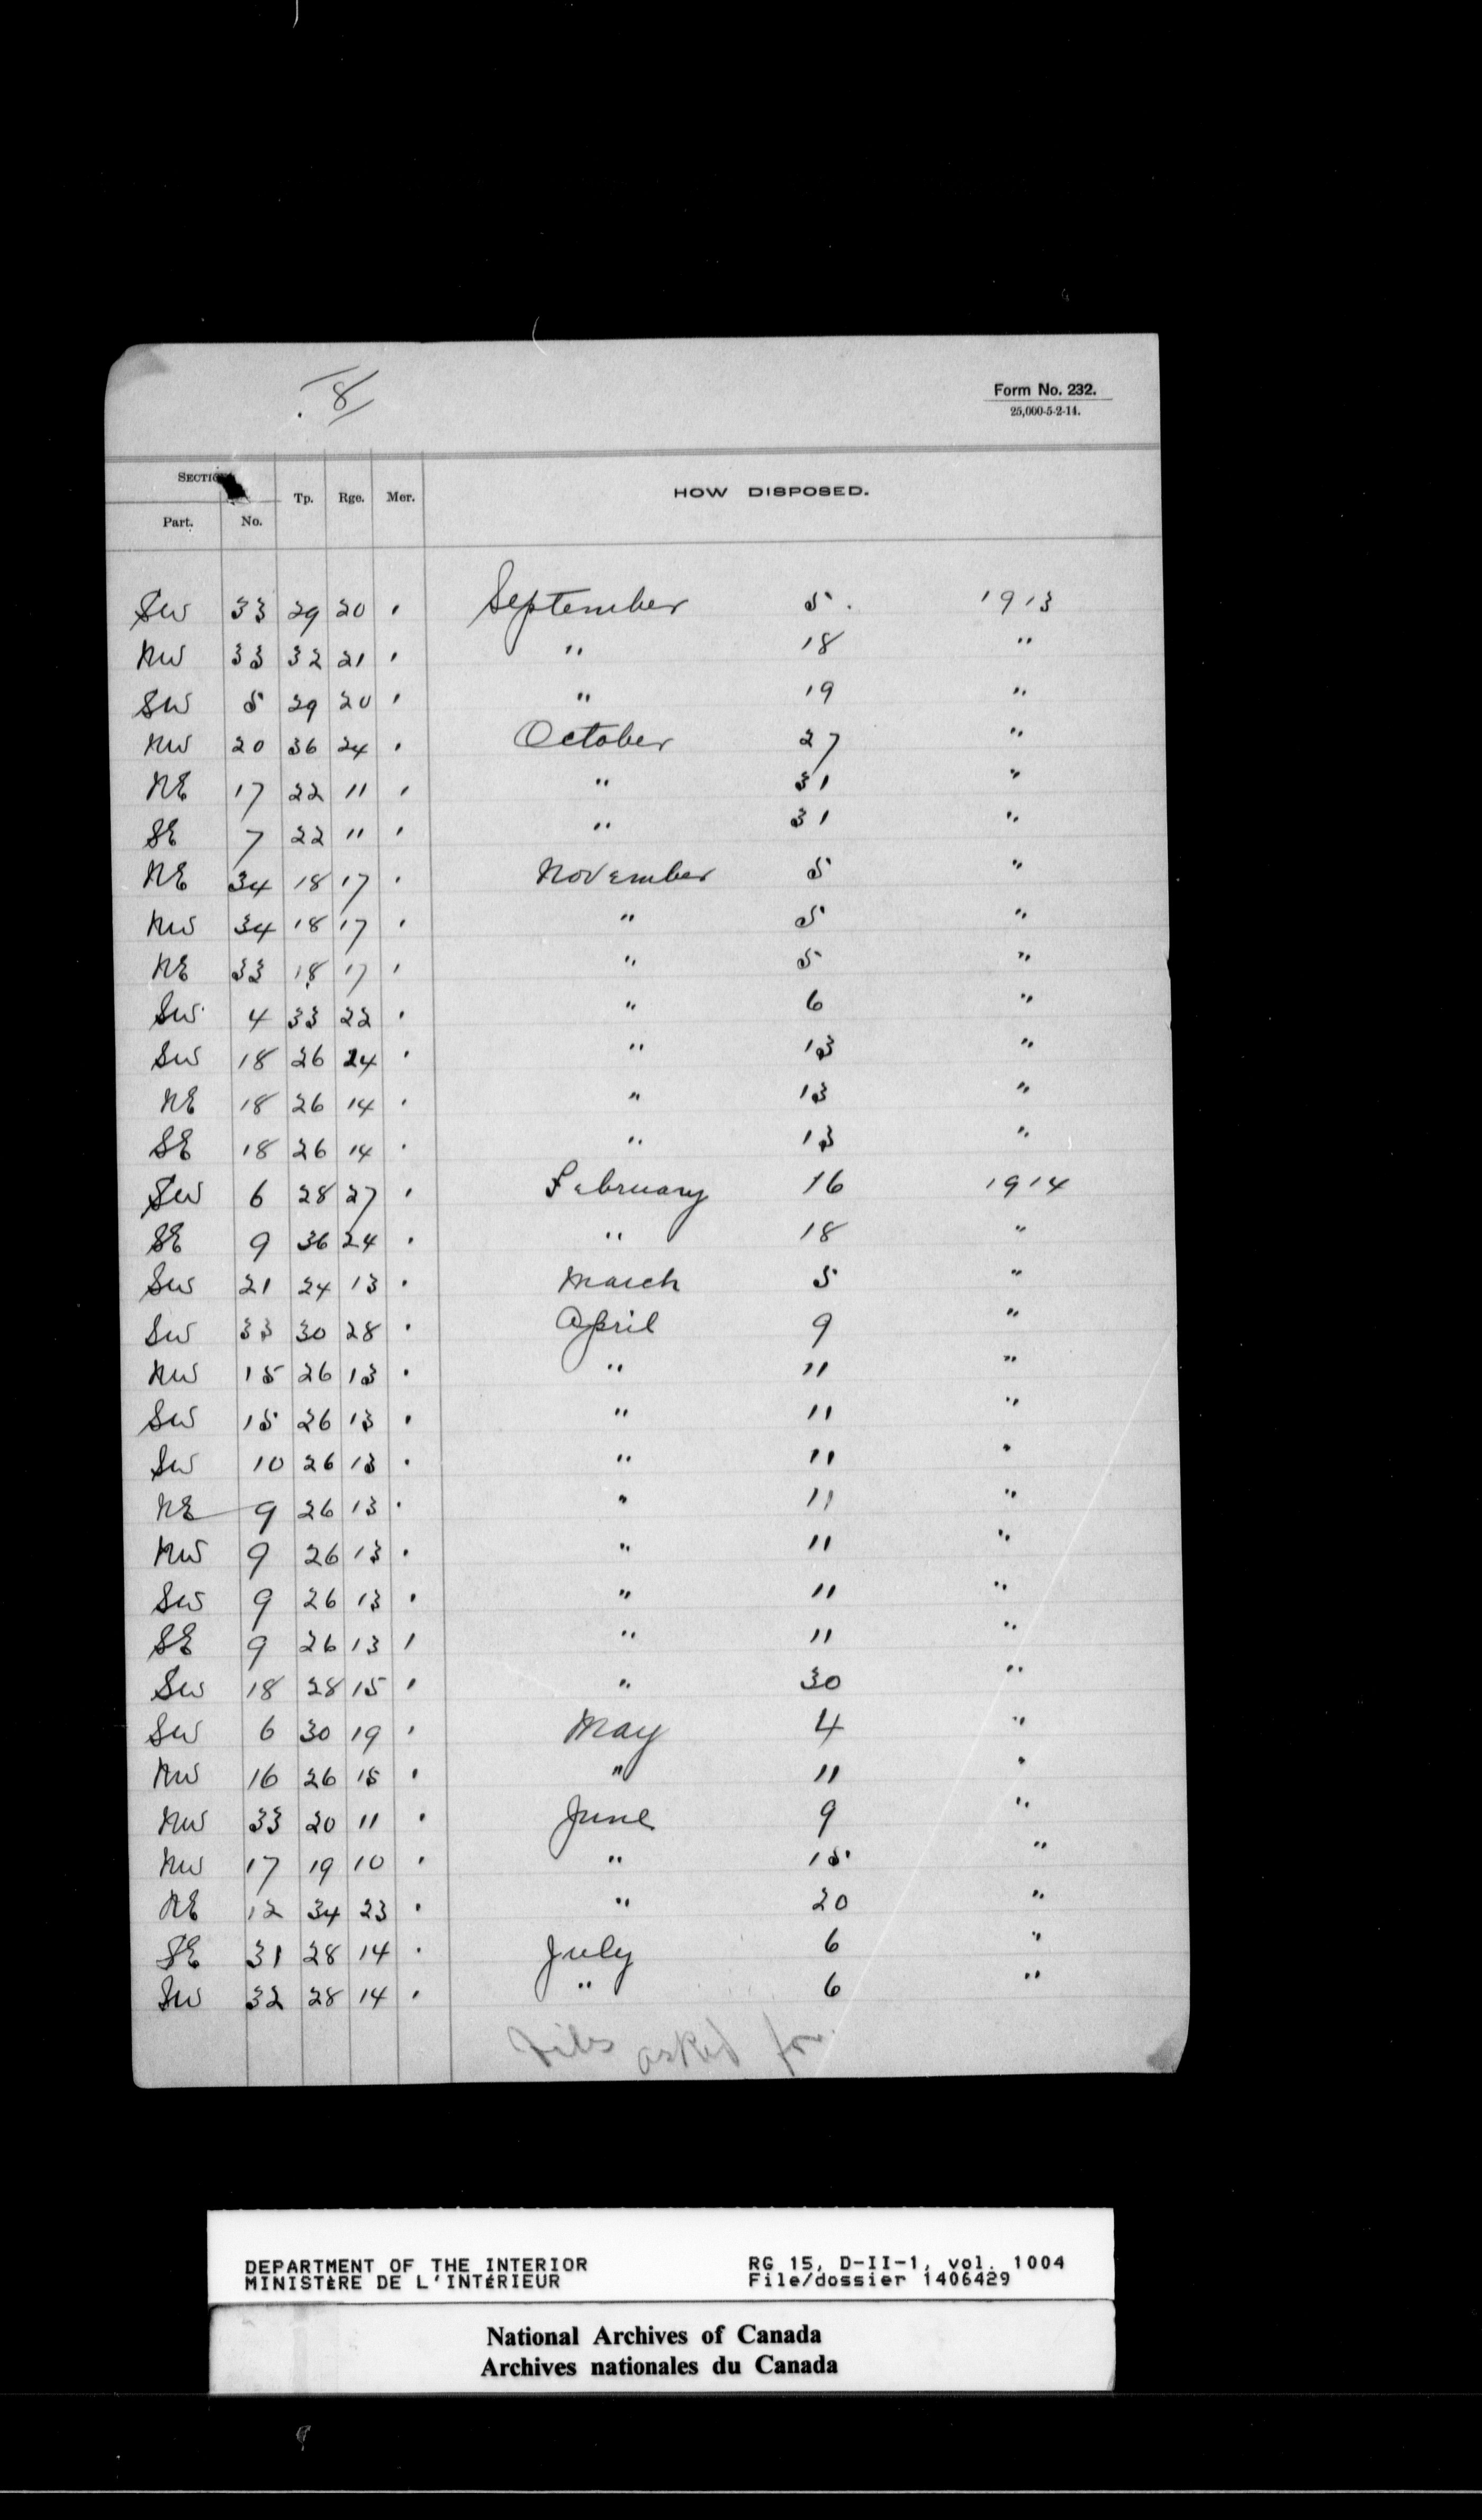 8
Form No. 232.
25,000-5-2-14.
SECTION Tp. Rge. Mer. HOW DISPOSED.
Part. No.
SW 33 29 20 ' September 5 . 1913
NW 33 32 21 ' " 18 "
SW 5 29 20 ' " 19 "
NW 20 36 24 ' October 27 "
NE 17 22 11 ' " 31 "
SE 7 22 11 ' " 31 "
NE 34 18 17 ' November 5 "
NW 34 18 17 ' " 5 "
NE 33 18 17 ' " 5 "
SW 4 33 22 ' " 6 "
SW 18 26 24 ' " 13 "
NE 18 26 14 ' " 13 "
SE 18 26 14 ' " 13 "
SW 6 28 27 ' February 16 1914
SE 9 36 24 ' " 18 "
SW 21 24 13 ' March 5 "
SW 33 30 28 ' April 9 "
NW 15 26 13 ' " 11 "
SW 15 26 13 ' " 11 "
SW 10 26 13 ' " 11 "
NE 9 26 13 ' " 11 "
NW 9 26 13 ' " 11 "
SW 9 26 13 ' " 11 "
SE 9 26 13 ' " 11 "
SW 18 28 15 ' " 30 "
SW 6 30 19 ' May 4 "
NW 16 26 15 ' " 11 "
NW 33 20 11 ' June 9 "
NW 17 19 10 ' " 15 "
NE 12 34 23 ' " 20 "
SE 31 28 14 ' July 6 "
SW 32 28 14 ' " 6 "
Files asked for
DEPARTMENT OF THE INTERIOR RG 15, D-II-1, vol. 1004
MINISTÈRE DE L'INTÉRIEUR File/dossier 1406429
National Archives of Canada
Archives nationales du Canada